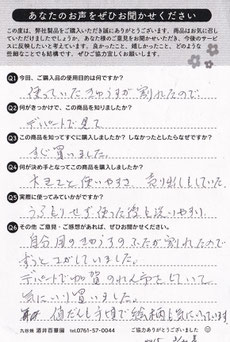 あなたのお声をぜひお聞かせください
この度は、弊社製品をご購入いただき誠にありがとうございます。商品はお気に召し
ていただけましたでしょうか。あなた様のご意見をお聞かせいただき、今後のサービ
スに反映したいと考えています。良かったこと、嬉しかったこと、どのような
些細なことでも結構です。ぜひご協力宜しくお願いします。
Q1 今回、ご購入品の使用目的は何ですか?
使っていたきゅうすが割れたので、
Q2 何がきっかけで、この商品を知りましたか?
デパートで見て
Q3 この商品を知ってすぐに購入しましたか? しなかったとしたらなぜですか?
すぐ買いました。
Q4 何が決め手となってこの商品を購入しましたか?
使いやすさ 売り出しもしていた。
Q5 実際に使ってみていかがですか?
使いやすい
Q6 その他ご意見・ご感想があれば、ぜひお聞かせください。
自分用のきゅうすのふたが割れたので
ずっとさがしていました。
デパートで加賀のれん市をしていて、
気にいり買いました。
値だんも手頃で絵柄も気にいっています。
九谷焼 酒井百華園 tel.0761-57-0044 ご協力ありがとうございました